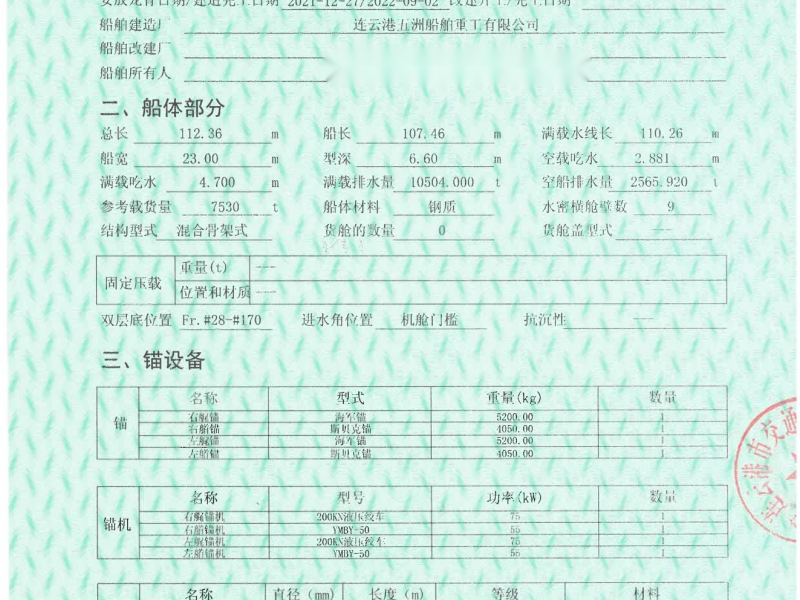 安放龙骨日期/建造完工日期 2021-12-27/2022-09-02 改建开工/完工日期
船舶建造厂 连云港五洲船舶重工有限公司
船舶改建厂
船舶所有人
二、船体部分
总长 112.36 m 船长 107.46 m 满载水线长 110.26 m
船宽 23.00 m 型深 6.60 m 空载吃水 2.881 m
满载吃水 4.700 m 满载排水量 10504.000 t 空船排水量 2565.920 t
参考载货量 7530 t 船体材料 钢质 水密横舱壁数 9
结构型式 混合骨架式 货舱的数量 0 货舱盖型式 ---
固定压载 重量(t) ---
位置和材质 ---
双层底位置 Fr.#28-#170 进水角位置 机舱门槛 抗沉性 ---
三、锚设备
锚 名称 型式 重量(kg) 数量
右艉锚 海军锚 5200.00 1
右艏锚 斯贝克锚 4050.00 1
左艉锚 海军锚 5200.00 1
左艏锚 斯贝克锚 4050.00 1
锚机 名称 型号 功率(kW) 数量
右艉锚机 200KN液压绞车 75 1
右艏锚机 YMBY-50 55 1
左艉锚机 200KN液压绞车 75 1
左艏锚机 YMBY-50 55 1
名称 直径(mm) 长度(m) 等级 材料
连云港市交通